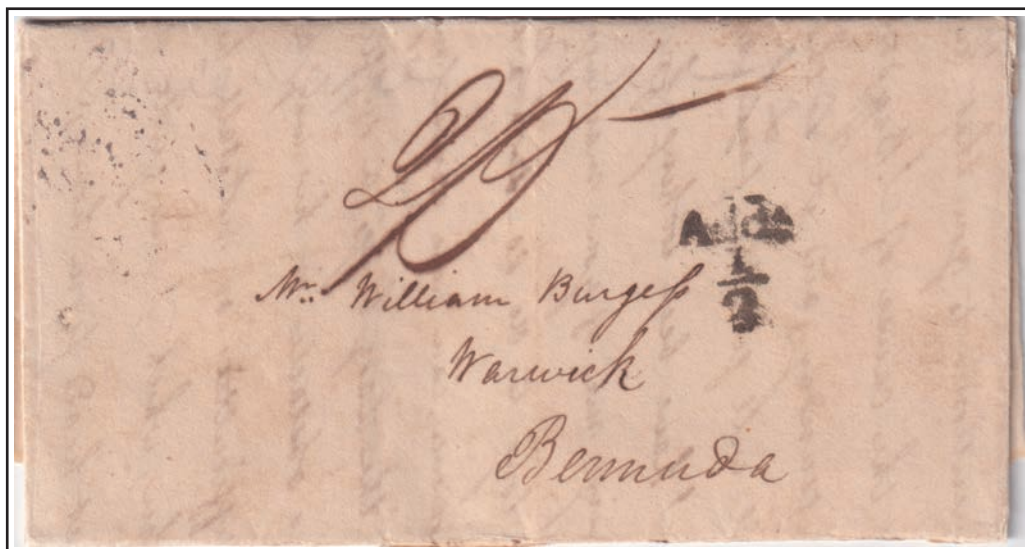 2/5
Add¼
½
Mr. William Burgeſs
Warwick
Bermuda